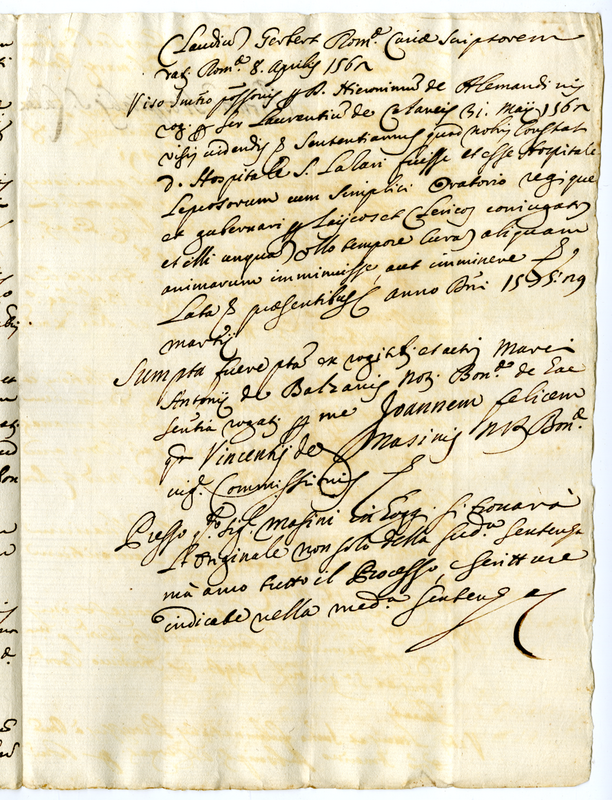 Claudiu) Gerbert Rom.ᵉ Curiæ Scriptorem
rat. Rom.ᵉ 8. Aprilis 156
Viso p R. Hieronimu) de Alemandinis
rog. p Ser Laurentiu) de 31. Maij 156
visis videndis Sententiamus quod nobis Constat
d. Hospitale S. Lazari fuisse et esse Hospitale
Leprosorum cum simplici Oratorio regique
et gubernari p Laijcos et Clericos coniugatos
et illi unqua) ullo tempore Cura) aliquam
animarum imminuisse, aut imminere
Lata præsentibus anno Dni 15 29
martij
Sumpta fuere pta ex rogitis et actis Marci
Antonij de Balzanis Not. Bon.ᵉ de
sentia rogati p me Joannem felicem
q Vincentij de Masinis Bon.ᵉ
vig. Commissi
Presso Sig. Masini in Logg. si trovarà
L'originale non solo della sud.ᵃ Sentenza
mà anco tutto il Processo, e scritture
indicate nella med.ᵃ Sentenza